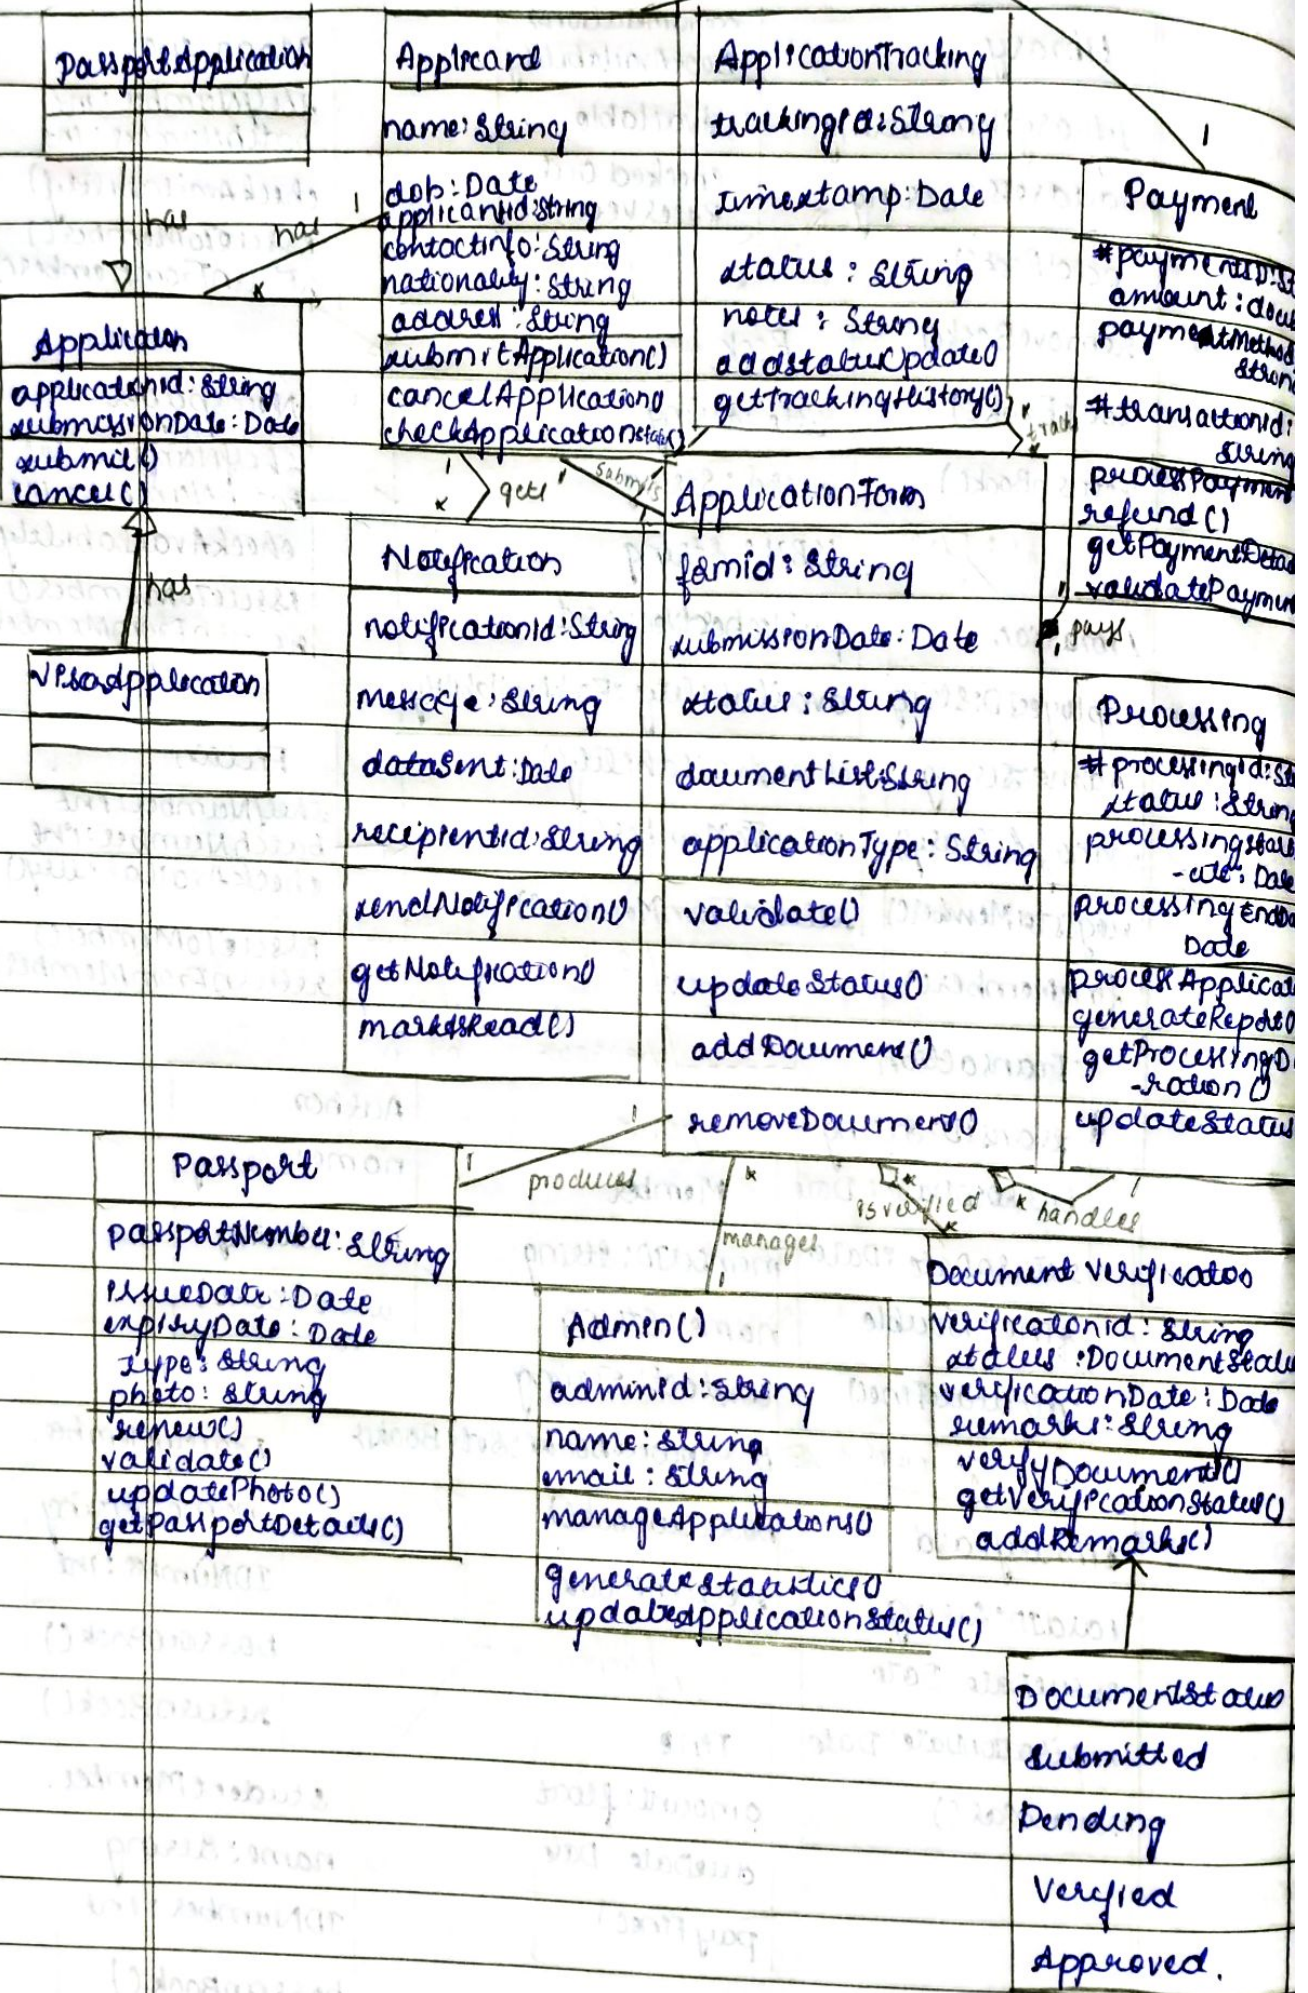 PassportApplication
has
has
1
*
Application
applicationid: String
submissionDate: Date
submit()
cancel()
has
VisaApplication
Applicant
name: String
dob: Date
applicantid: String
contactinfo: String
nationality: String
address: String
submitApplication()
cancelApplication()
checkApplicationstatus()
ApplicationTracking
trackingid: String
timestamp: Date
status: String
notes: String
addstatusUpdate()
getTrackingHistory()
1
track
*
1
Payment
#paymentID: St
amount: doub
paymentMethod
String
#transactionid:
String
processPayment
refund()
getPaymentDetai
validatePaymen
1
pays
1
1
*
gets
1
submits
1
Notification
notificationid: String
message: String
dataSent: Date
recipientid: String
sendNotification()
getNotification()
markAsRead()
ApplicationForm
formid: String
submissionDate: Date
status: String
documentList: String
applicationType: String
validate()
updateStatus()
addDocument()
removeDocument()
Processing
#processingid: St
status: String
processingstar
-date: Date
processingEndDa
Date
processApplica
generateReport()
getProcessingD
-ration()
updatestatus
Passport
1
produces
1
passportNumber: String
issueDate: Date
expiryDate: Date
type: String
photo: String
renew()
validate()
updatePhoto()
getPassportDetails()
*
manages
1
Admin()
adminid: String
name: string
email: string
manageApplications()
generatestatistics()
updateApplicationstatus()
*
is verified
*
*
handles
1
Document Verificatoo
verificationid: String
status: DocumentStatu
verificationDate: Date
remarks: String
verifyDocument()
getVerificationStatus()
addRemarks()
DocumentStatus
Submitted
Pending
Verified
Approved.